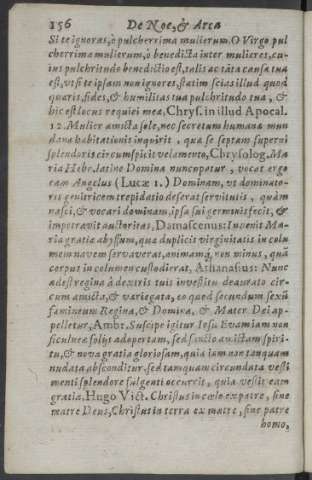 156 De Noe, & Arca
Si te ignoras, ò pulcherrima mulierum. O Virgo pul
cherrima mulierum, ò benedicta inter mulieres, cu-
ius pulchritudo benedictio est, talis ac tāta causa tua
est, vt si te ipsam non ignores, statim scias illud quod
quæris, fides, & humilitas tua pulchritudo tua, &
hic est locus requiei mea. Chrys. in illud Apocal.
12. Mulier amicta sole, nec secretum humana mun
dana habitationis inquirit, qua se septam superni
splendoris circumspicit velamento, Chrysolog. Ma
ria Hebr. latinè Domina nuncupatur, vocat ergo
eam Angelus (Lucæ 1.) Dominam, vt dominato-
ris genitricem trepidatio deserat seruitutis, quàm
nasci, & vocari dominam, ipsa sui germinis fecit, &
impetrauit austeritas, Damascenus: Inuenit Ma
ria gratia abyssum, qua duplicis virginitatis in colu
mem nauem seruauerat, animamq́, non minus, quā
corpus in columen custodierat, Athanasius: Nunc
adest regina à dexiris tuis in vestitu deaurato cir-
cum amicta, & variegata, eo quod secundum sexū
famineum Regina, & Domina, & Mater Dei ap-
pelletur, Ambr. Suscipe igitur Iesu Euam iam non
ficulneæ folijs adopertam, sed sancto amictam spiri-
tu, & noua gratia gloriosam, quia iam non tamquam
nudata absconditur, sed tamquam circundata vesti
menti splendore fulgenti occurrit, quia vestit eam
gratia, Hugo Vict. Christus in cælo ex patre, sine
matre Deus, Christus in terra ex matre, sine patre
homo,